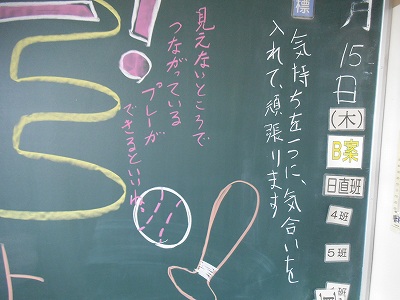 月
15
日
(木)
B案
日直班
4班
5班
班
標
気持ちを一つに、気合いを
入れて、頑張ります
見えないところで
つながっている
プレーが
できるといいね
!
ト